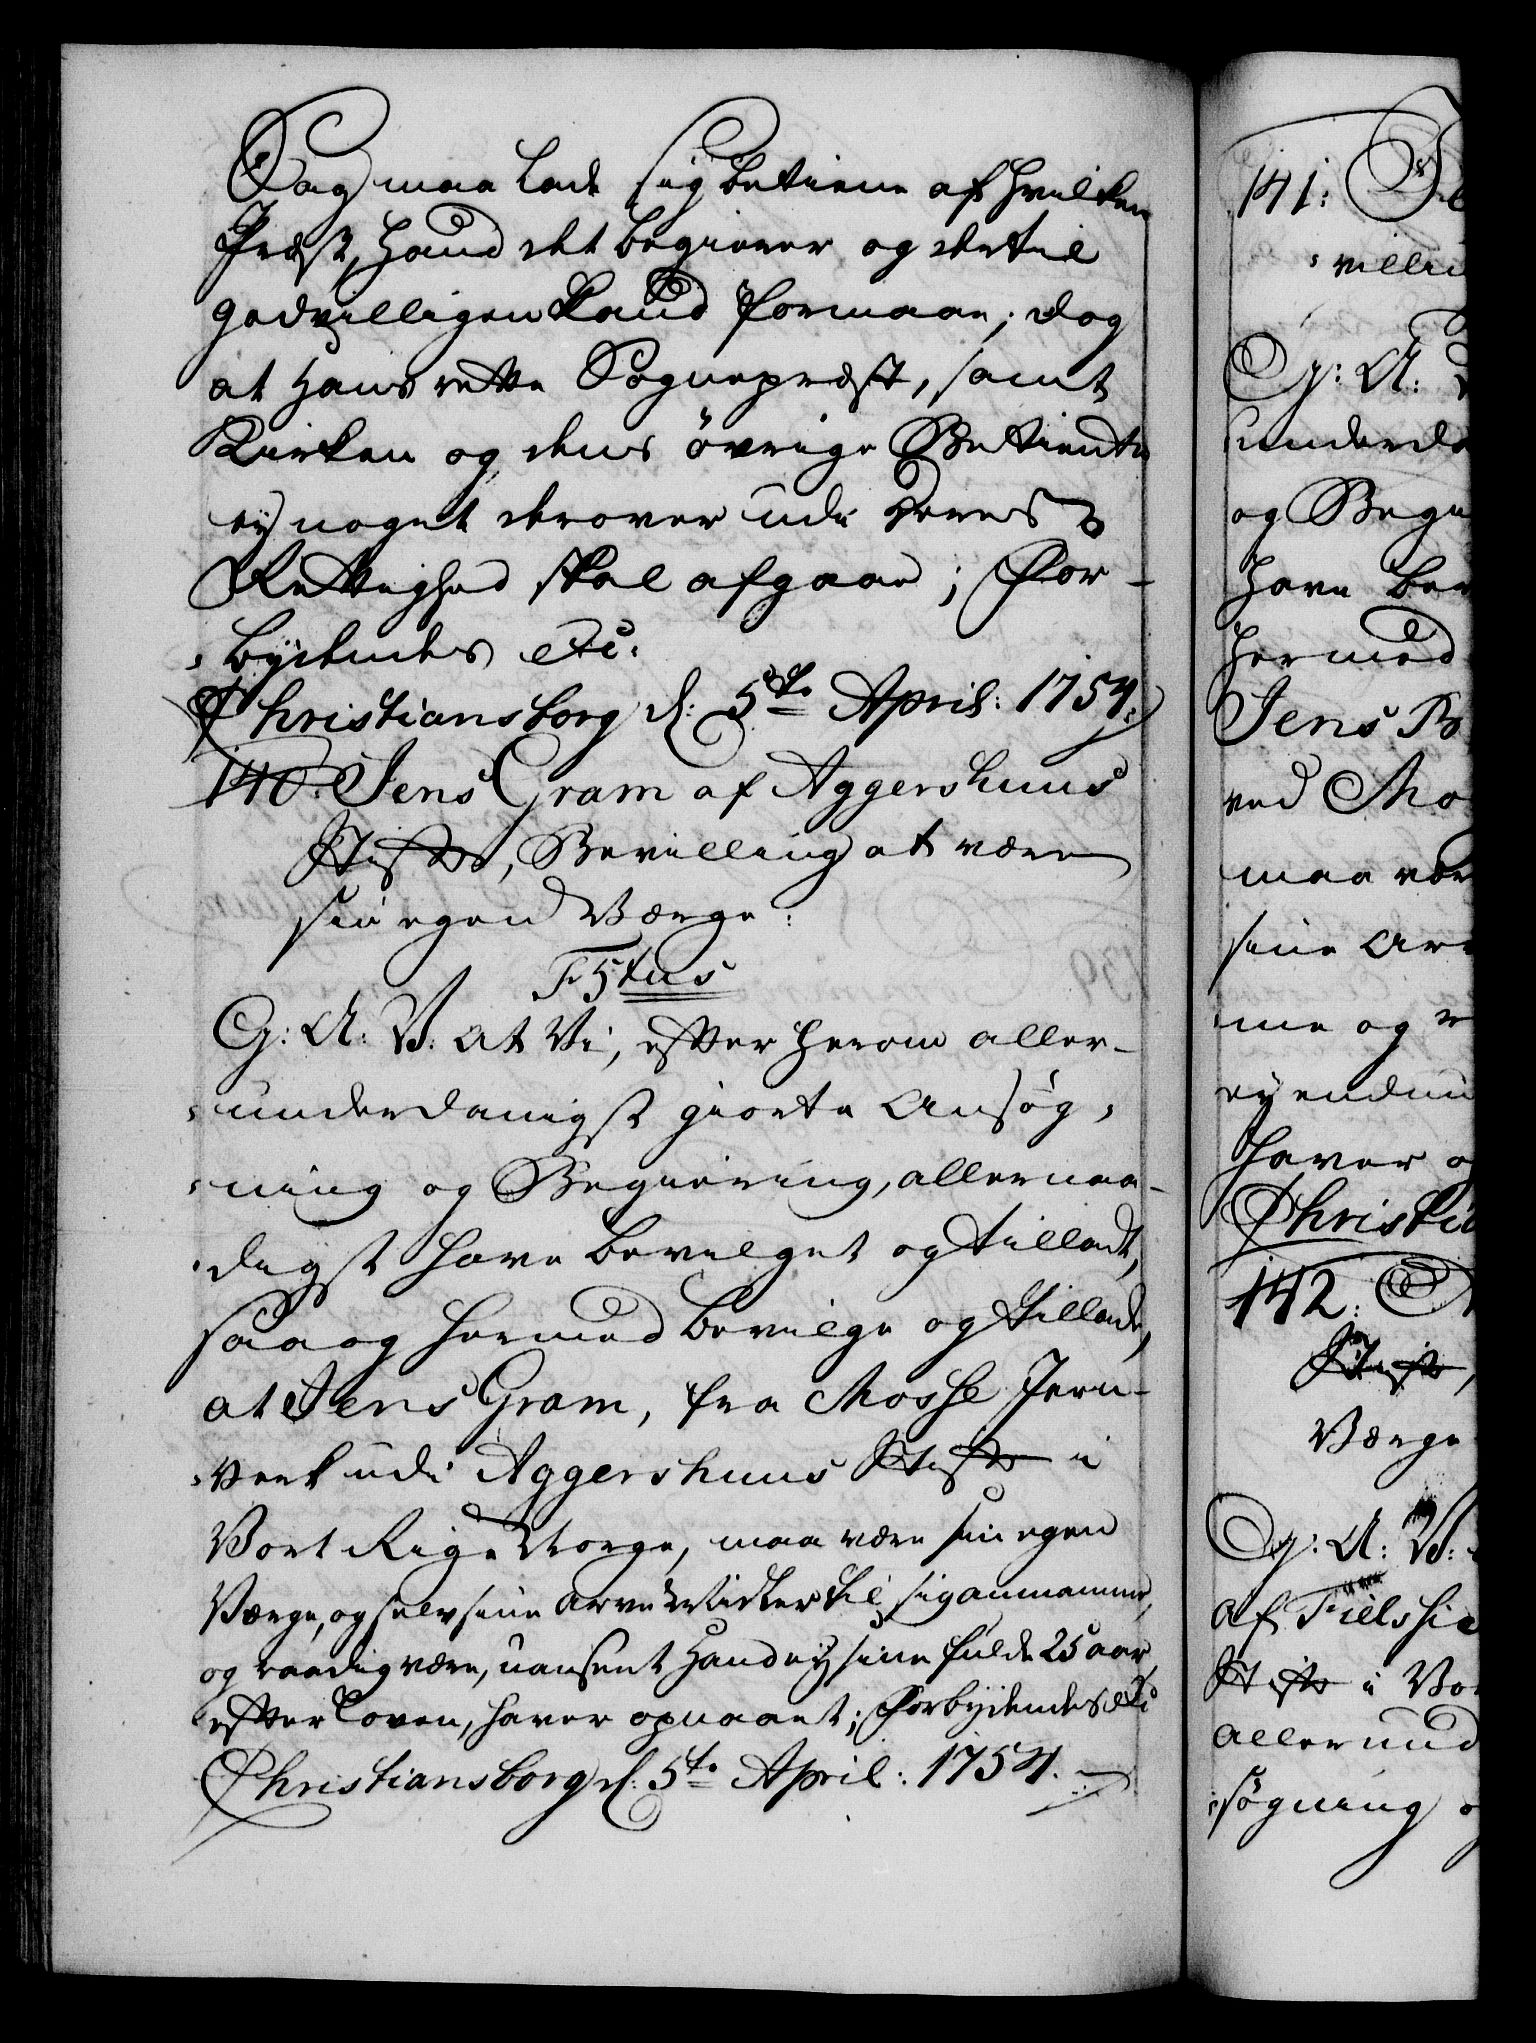 Dag maa lade sig betiene af hvilken
Præst, Hand det begierer og dertil
godvilligen kand formaae; dog
at Hans rette Sognepræst, samt
Kirken og dens övrige Betiente
ey noget derover udi Deres
Rettighed skal afgaae; For-
bydendes etc.
Christiansborg d: 5te April: 1754.
140. Jens Gram af Aggershuus
Stift, Bevilling at være
sin egen Værge.
F 5tus
G: A: V: at Vi, efter herom aller-
underdanigst giorte Ansøg-
ning og Begiering, allernaa-
digst have bevilget og tilladt,
saa og hermed bevilge og tillade,
at Jens Gram, fra Mosse Jern-
verk udi Aggershuus Stift i
Vort Rige Norge, maa være sin egen
Værge, og selv sine Arve Midler til sig annamme,
og raadig være, uanseet Hand ey sine fulde 25 aar,
efter Loven, haver opnaaet; Forbydendes etc
Christiansborg d: 5te April: 1754.
141:
villi
G: A:
underda
og Begi
have be
hermed
Jens B
ved Mo
maa vær
sine Arv
me og r
ey endnu
haver o
Christia
142:
Stift,
Værge
G: A: V:
af
Stift i Vo
allerund
søgning o